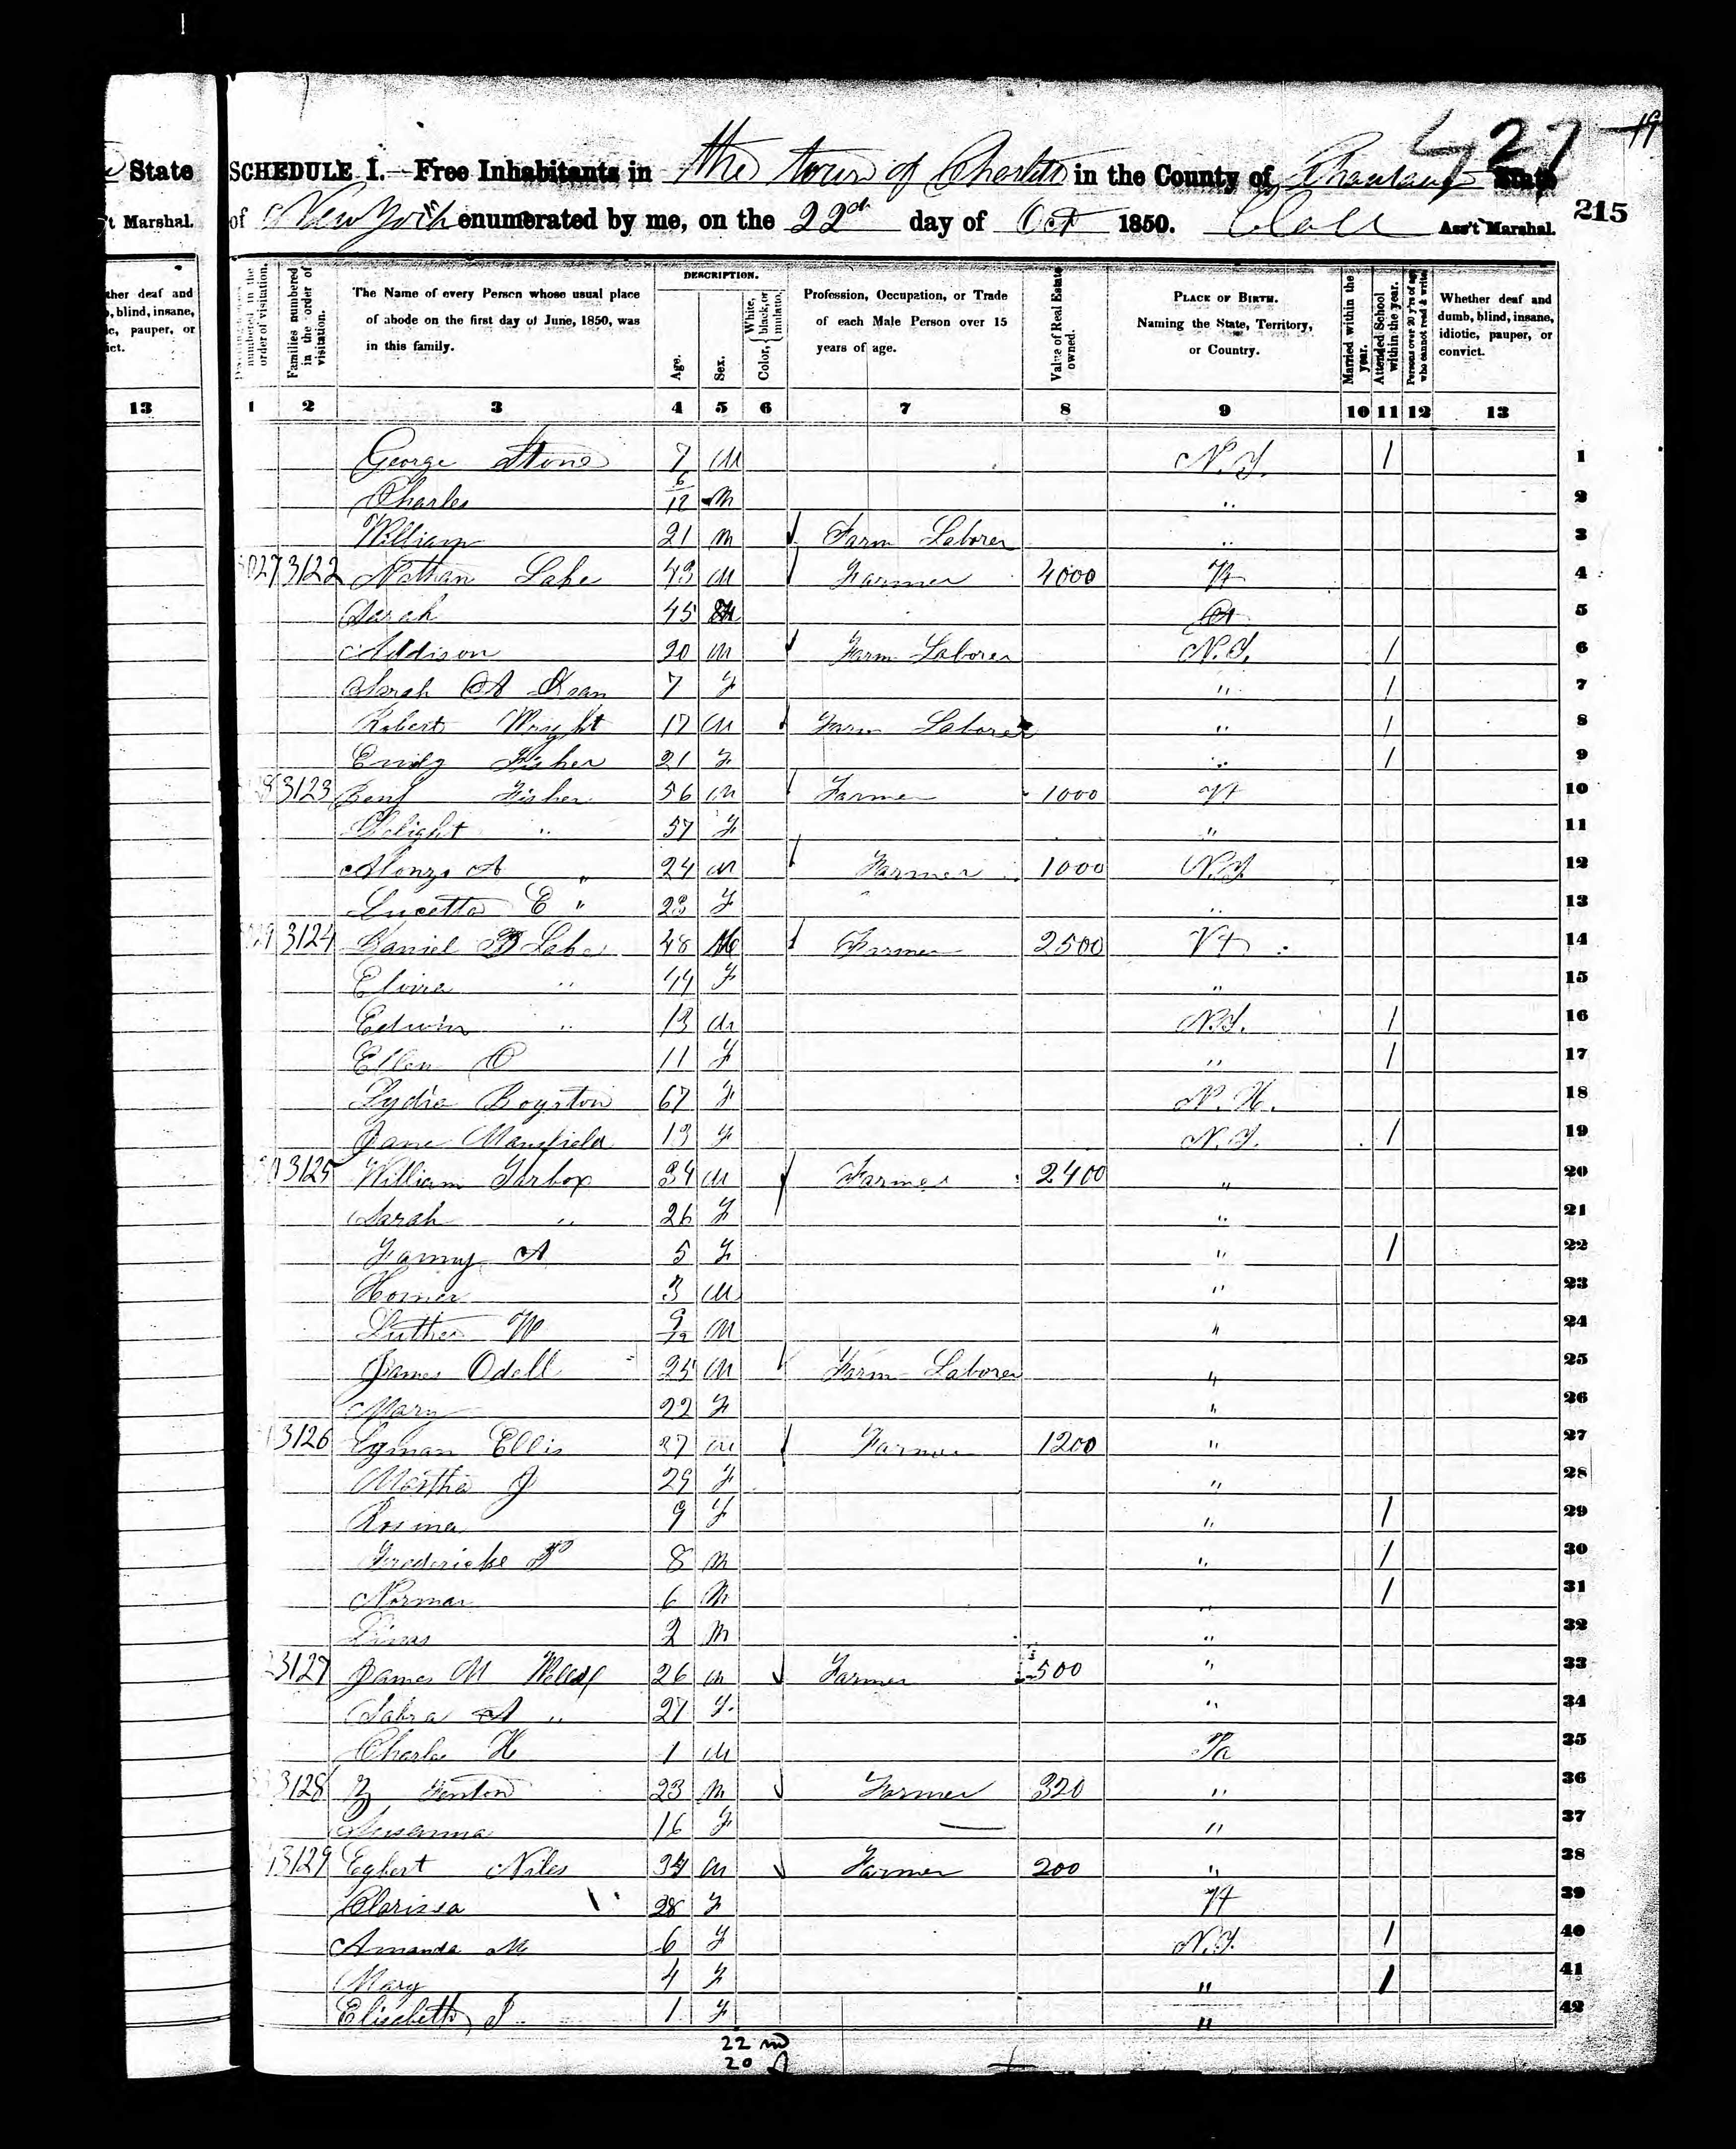 427 19
State SCHEDULE I.—Free Inhabitants in the town of Charlotte in the County of Chautauque State
't Marshal. of New York enumerated by me, on the 22d day of Oct 1850. Ass't Marshal. 215
ther deaf and
, blind, insane,
ic, pauper, or
ict.
numbered in the order of visitation.
Families numbered in the order of visitation.
The Name of every Person whose usual place of abode on the first day of June, 1850, was in this family.
DESCRIPTION.
Age.
Sex.
Color, White, black, or mulatto.
Profession, Occupation, or Trade of each Male Person over 15 years of age.
Value of Real Estate owned.
PLACE OF BIRTH. Naming the State, Territory, or Country.
Married within the year.
Attended School within the year.
Persons over 20 y'rs of age who cannot read & write.
Whether deaf and dumb, blind, insane, idiotic, pauper, or convict.
13 1 2 3 4 5 6 7 8 9 10 11 12 13
George Stone 7 M N.Y. 1 1
Charles 6/12 M " 2
William 21 M Farm Laborer " 3
027 3122 Nathan Lake 43 M Farmer 4000 Vt 4
Sarah 45 5
Addison 20 M Farm Laborer N.Y. 1 6
Sarah A 7 F " 1 7
Robert Wright 17 M Farm Laborer " 1 8
Emily Fisher 21 F " 1 9
3123 Benj Fisher 56 M Farmer 1000 Vt 10
Delight " 57 F " 11
Alonzo A " 24 M Farmer 1000 N.Y. 12
Lucetta E " 23 F " 13
3124 Daniel B Lake 48 M Farmer 2500 Vt 14
Elvira " 44 F " 15
Edwin " 13 M N.Y. 1 16
Ellen O 11 F " 1 17
Lydia Boyston 67 F N.H. 18
Jane Mansfield 13 F N.Y. 1 19
3125 William Tarbox 34 M Farmer 2400 " 20
Sarah " 26 F " 21
Fanny A 5 F " 1 22
Homer 3 M " 23
Luther W 9/12 M " 24
James Odell 25 M Farm Laborer " 25
Mary 22 F " 26
3126 Lyman Ellis 37 M Farmer 1200 " 27
Martha J 29 F " 28
Rosina 9 F " 1 29
Fredericke 8 M " 1 30
Norman 6 M " 1 31
Linus 2 M " 32
3127 James M 26 M Farmer 500 " 33
Sabra A " 27 F " 34
Charles H 1 M Pa 35
3128 Z Fenton 23 M Farmer 320 " 36
Susanna 16 F — " 37
3129 Egbert Niles 34 M Farmer 200 " 38
Clarissa " 28 F Vt 39
Amanda M 6 F N.Y. 1 40
Mary 4 F " 1 41
Elisebeth J 1 F " 42
22 m
20 f